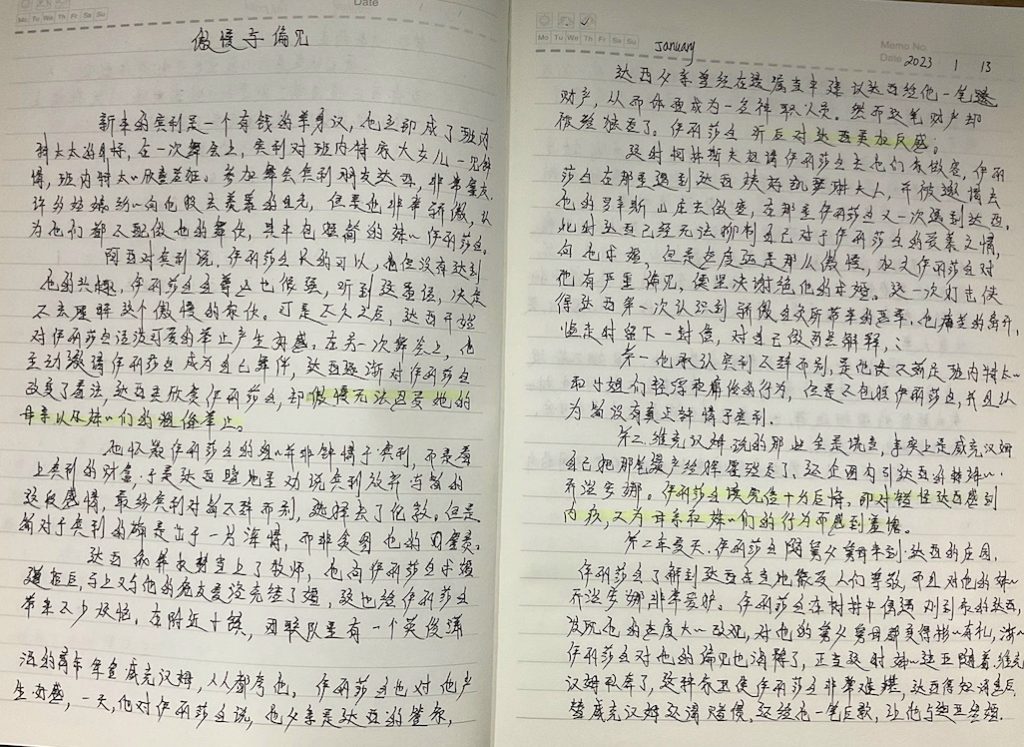 Date
Mo Tu We Th Fr Sa Su
傲慢与偏见
新来的宾利是一个有钱的单身汉，他立即成了班内
特太太的，在一次舞会上，宾利对班内特家大女儿一见钟
情，班内特太〃欣喜若狂。参加舞会宾利朋友达西，非常富有，
许多姑娘纷〃向他投去羡慕的目光，但是他非常骄傲，认
为他们都不配做他的舞伴，其中包括简的妹〃伊丽莎白。
达西对宾利说，伊丽莎白长的可以，但没有达到
他的，伊丽莎白自尊心也很强，听到这番话，决定
不去理睬这个傲慢的家伙。可是不久之后，达西开始
对伊丽莎白活泼可爱的举止产生好感，在另一次舞会上，他
主动邀请伊丽莎白成为自己舞伴，达西逐渐对伊丽莎白
改变了看法，达西喜欣赏伊丽莎白，却傲慢无法忍受她的
母亲以及妹〃们的粗俗举止。
他怀疑伊丽莎白的姐〃并非钟情于宾利，而是看
上宾利的财富，于是达西竭力主动说宾利放弃与简的
这段感情，最终宾利对简不辞而别，选择去了伦敦。但是
简对于宾利的确是出于一片深情，而非贪图他的。
达西表弟柯林斯当上了牧师，他向伊丽莎白求婚
遭拒后，马上又与他的女友夏洛克结了婚，这也给伊丽莎白
带来不少烦恼。在附近小镇，民联队里有一个英俊潇
洒的青年军官威克汉姆，人人都夸他。伊丽莎白也对他产
生好感，一天，他对伊丽莎白说，他父亲是达西的管家，
Mo Tu We Th Fr Sa Su
January
Memo No.
Date 2023 1 13
达西父亲曾经在遗嘱当中建议达西给他一笔
财产，从而体面成为一名神职人员。然而这笔财产却
被给独吞了。伊丽莎白听后对达西更加反感；
这时柯林斯夫妇请伊丽莎白去他们家做客，伊丽
莎白在那里遇到达西姨妈凯瑟琳夫人，并被邀请去
他的罗辛斯山庄去做客，在那里伊丽莎白又一次遇到达西。
此时达西已经无法抑制自己对于伊丽莎白的爱慕之情，
向他求婚，但是态度还是那么傲慢，加之伊丽莎白对
他有严重偏见，便坚决谢绝他的求婚。这一次打击使
得达西第一次认识到骄傲自负所带来的恶果，他痛苦的离开，
临走时留下一封信，对自己做两点解释，：
第一他承认宾利不辞而别，是他使不满足班内特太〃
和小姐们轻浮和痛俗的行为，但是不包括伊丽莎白，并且认
为简没有真正钟情于宾利。
第二维克汉姆说的那些全是谎言，事实上是威克汉姆
自己把那笔遗产给挥霍殆尽了，还企图勾引达西的妹妹〃
乔治安娜。伊丽莎白读完信十分后悔，即对错怪达西感到
内疚，又为母亲和妹〃们的行为而感到羞愧。
第二年夏天，伊丽莎白随舅父舅母来到达西的庄园，
伊丽莎白了解到达西在当地很受人们尊敬，而且对他的妹〃
乔治安娜非常爱护。伊丽莎白在树林中偶遇刚到家的达西，
发现他的态度大〃改观，对他的舅父舅母都变得彬〃有礼，渐〃
伊丽莎白对他的偏见也消释了，正当这时妹〃达亚随着维克
汉姆私奔了，这种家丑使伊丽莎白非常难堪，达西得知消息后
替威克汉姆还清赌债，还给他一笔巨款，让他与达亚完婚。